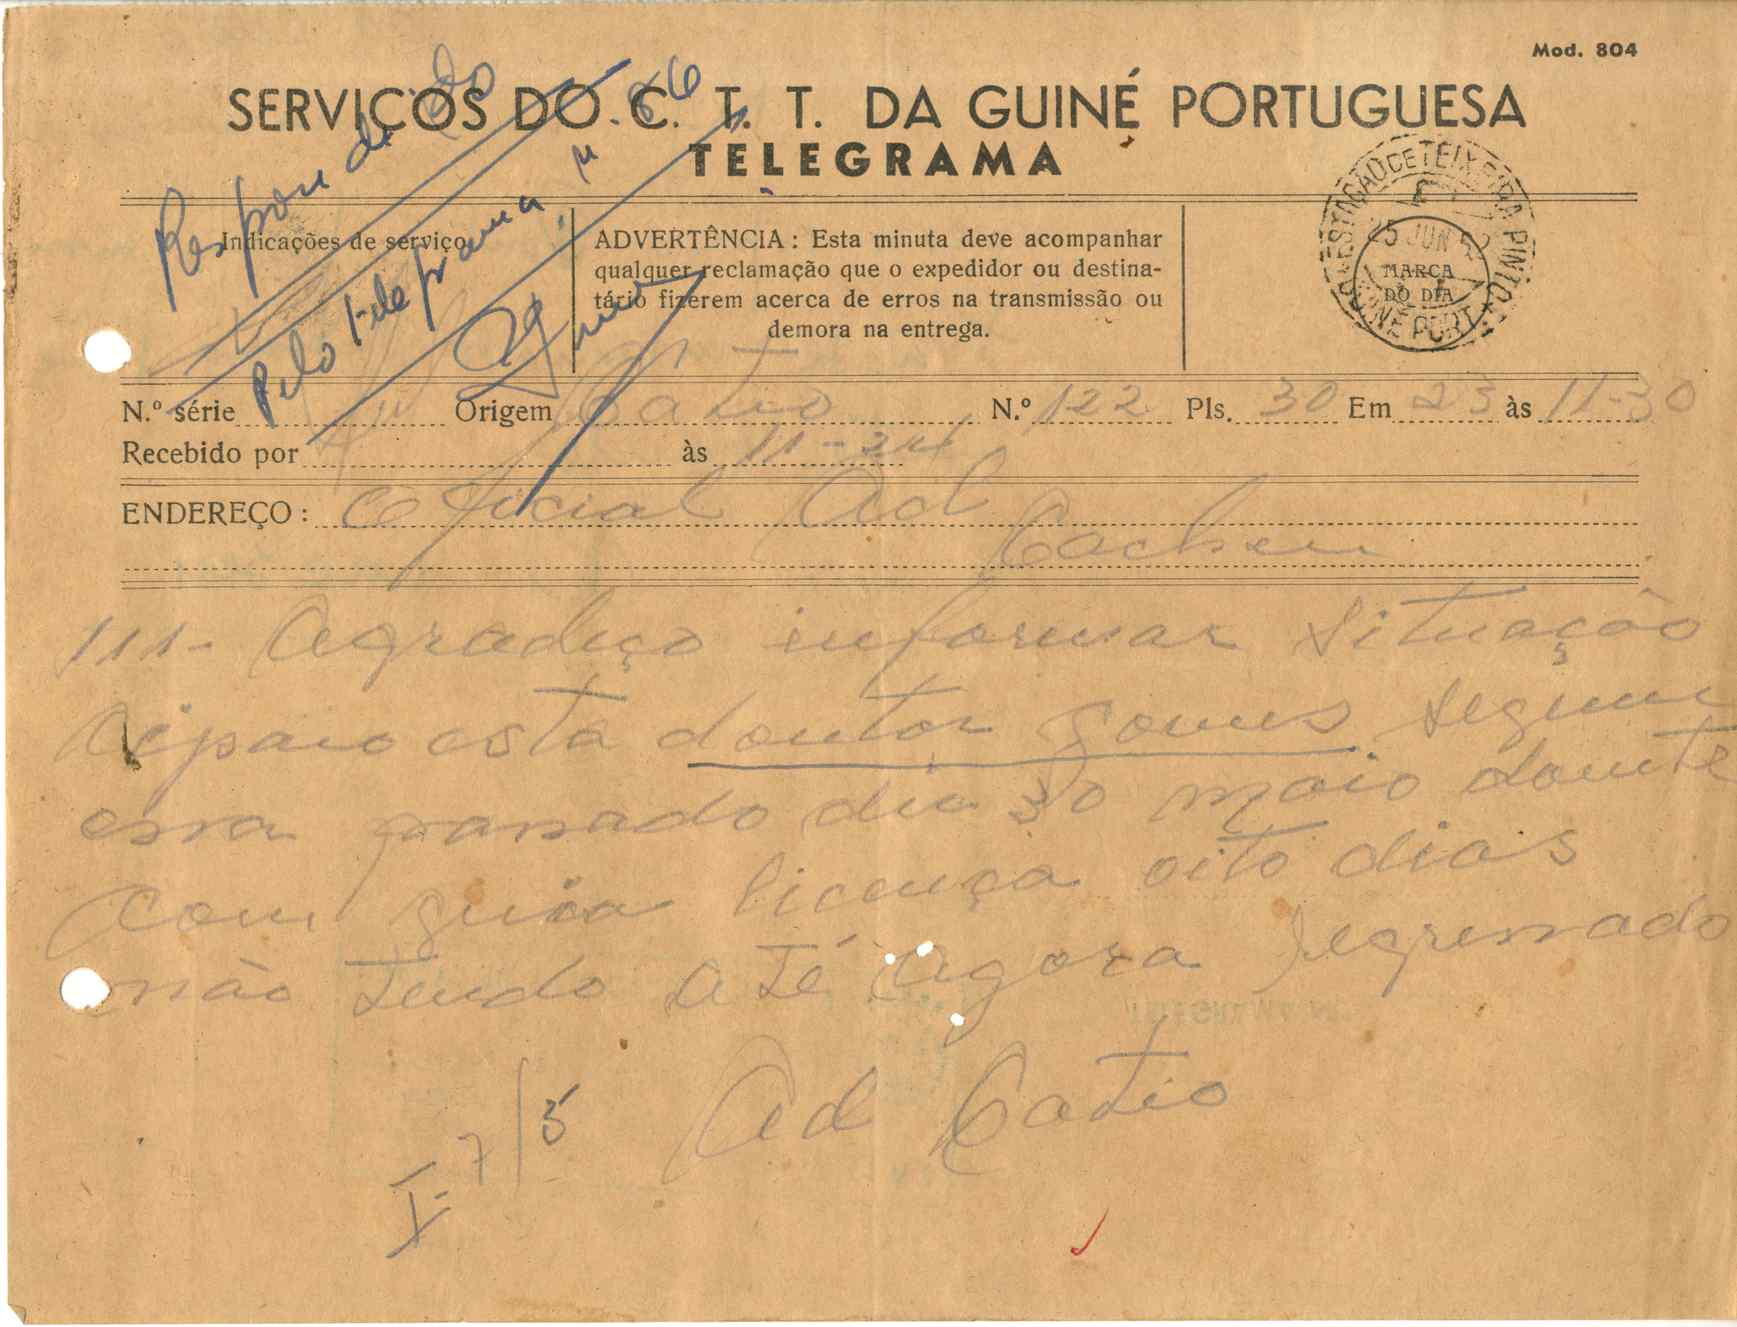 Mod. 804
SERVIÇOS DO C. T. T. DA GUINÉ PORTUGUESA
TELEGRAMA
Respondido
pelo telegrama nº 86
Indicações de serviço
ADVERTÊNCIA : Esta minuta deve acompanhar
qualquer reclamação que o expedidor ou destina-
tário fizerem acerca de erros na transmissão ou
demora na entrega.
ESTAÇÃO DE TEIXEIRA PINTO
25 JUN 5
MARCA
DO DIA
GUINÉ PORT.
N.º série Origem Catió N.º 122 Pls. 30 Em 23 às 11-30
Recebido por às 11-34
ENDEREÇO : Oficial Ad
Cacheu
111- Agradeço informar situação
cipaio esta doutor gomes seguiu
essa passado dia 30 maio doente
com guia licença oito dias
não tendo até agora regressado
Ad Catió
7/5